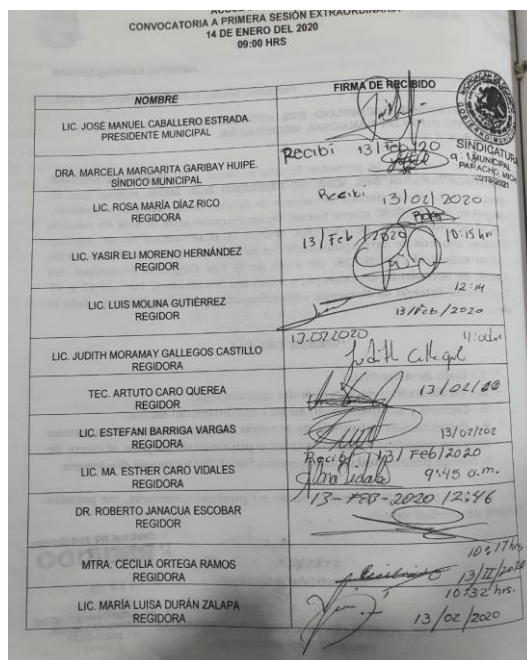 CONVOCATORIA A PRIMERA SESIÓN EXTRAORDINARIA
14 DE ENERO DEL 2020
09:00 HRS
NOMBRE
FIRMA DE RECIBIDO
LIC. JOSÉ MANUEL CABALLERO ESTRADA.
PRESIDENTE MUNICIPAL
DRA. MARCELA MARGARITA GARIBAY HUIPE.
SÍNDICO MUNICIPAL
Recibi 13/Feb/20
SINDICATURA
MUNICIPAL
PARACHO, MICH.
2018-2021
LIC. ROSA MARÍA DÍAZ RICO
REGIDORA
Recibi 13/02/2020
LIC. YASIR ELI MORENO HERNÁNDEZ
REGIDOR
13/Feb/2020 10:15 hrs
LIC. LUIS MOLINA GUTIÉRREZ
REGIDOR
12:14
13/Feb/2020
LIC. JUDITH MORAMAY GALLEGOS CASTILLO
REGIDORA
13.02.2020
Judith
TEC. ARTUTO CARO QUEREA
REGIDOR
13/02/20
LIC. ESTEFANI BARRIGA VARGAS
REGIDORA
13/02/202
LIC. MA. ESTHER CARO VIDALES
REGIDORA
Recibi 13/Feb/2020
9:45 a.m.
DR. ROBERTO JANACUA ESCOBAR
REGIDOR
13-FEB-2020 12:46
MTRA. CECILIA ORTEGA RAMOS
REGIDORA
10:17 hrs
13/II/2020
LIC. MARÍA LUISA DURÁN ZALAPA
REGIDORA
10:32 hrs.
13/02/2020